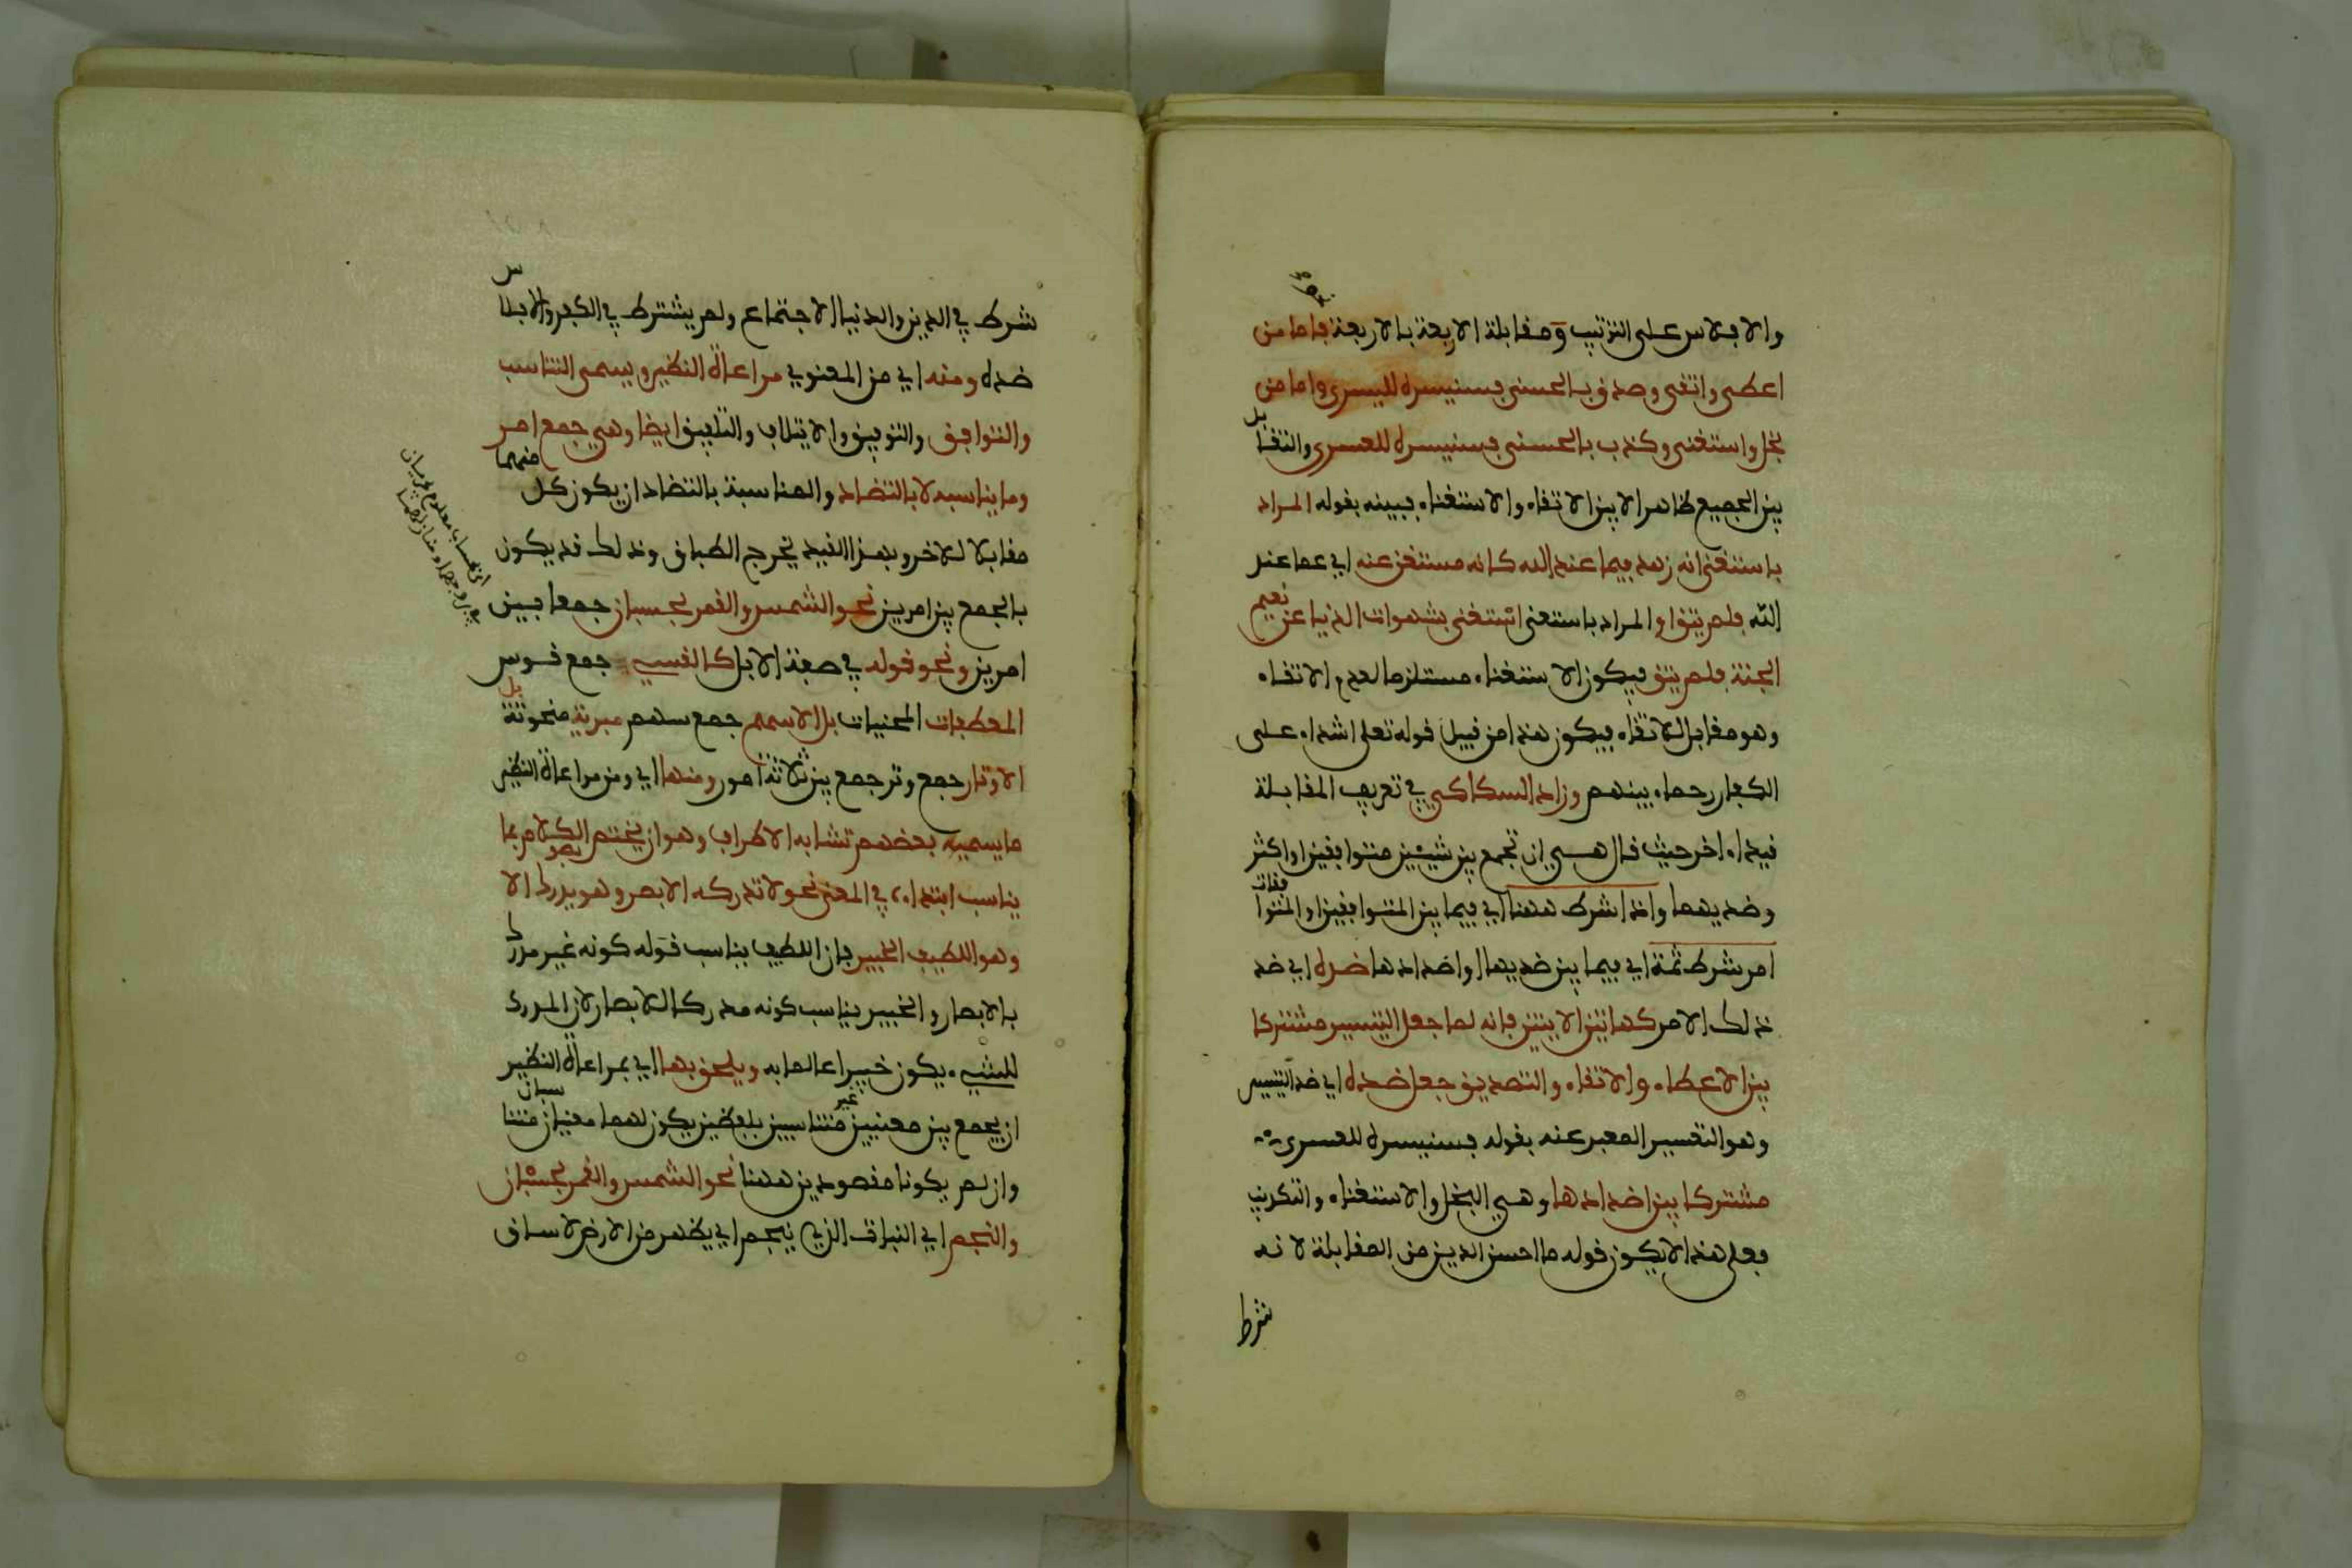 والافلاس على الترتيب و مقابلة الاربعة بالاربعة فاما من
اعطى واتقى وصدق بالحسنى فسنيسره لليسرى واما من
بخل واستغنى وكذب بالحسنى فسنيسره للعسرى والتقابل
بين الجميع ظاهر الا بين الاتقاء والاستغناء فبينه بقوله المراد
باستغنى انه زهد فيما عند الله كانه مستغن عنه اي عما عند
الله فلم يتق او المراد باستغنى استغنى بشهوات الدنيا عن نعيم
الجنة فلم يتق فيكون الاستغناء مستلزما لعدم الاتقاء
وهو مقابل للاتقاء فيكون هذا من قبيل قوله تعلى اشداء على
الكفار رحماء بينهم وزاد السكاكي في تعريف المقابلة
قيدا اخر حيث قال هي ان تجمع بين شيئين متوافقين او اكثر
وضديهما واذا شرط ههنا اي فيما بين المتوافقين او المتوافقات
امر شرط ثمة اي فيما بين ضديهما او اضدادها ضده اي ضد
ذلك الامر كهاتين الايتين فانه لما جعل التيسير مشتركا
بين الاعطاء والاتقاء والتصديق جعل ضده اي ضد التيسير
وهو التعسير المعبر عنه بقوله فسنيسره للعسرى
مشتركا بين اضدادها وهي البخل والاستغناء والتكذيب
فعلى هذا لا يكون قوله ما احسن الدين من المقابلة لانه
شرط
شرط في الدين والدنيا الاجتماع ولم يشترط في الكفر والافلاس
ضده ومنه اي من المعنوي مراعاة النظير ويسمى التناسب
والتوافق والتوفيق والايتلاف والتلفيق ايضا وهي جمع امر
وما يناسبه لا بالتضاد والمناسبة بالتضاد ان يكون كل منهما
مقابلا للاخر وبهذا القيد يخرج الطباق وذلك قد يكون
بالجمع بين امرين نحو الشمس والقمر بحسبان جمعا بين
اي بحساب معلوم يجريان
في بروجهما ومنازلهما
امرين ونحو قوله في صفة الابل كالقسي جمع قوس
المعطفات المحنيات بل الاسهم جمع سهم مبرية منحوتة بل
الاوتار جمع وتر جمع بين ثلاثة امور ومنها اي ومن مراعاة النظير
ما يسميه بعضهم تشابه الاطراف وهو ان يختم الكلام بما
يناسب ابتداءه في المعنى نحو لا تدركه الابصر وهو يدرك الا بصر
وهو اللطيف الخبير فان اللطيف يناسب قوله كونه غير مدرك
بالابصار والخبير يناسب كونه مدركا للابصار لان المدرك
للشيء يكون خبيرا عالما به ويلحق بها اي بمراعاة النظير
ان يجمع بين معنيين غير متناسبين بلفظين يكون لهما معنيان متناسبان
وان لم يكونا مقصودين ههنا نحو الشمس والقمر بحسبان
والنجم اي النبات الذي ينجم اي يظهر من الارض لا ساق